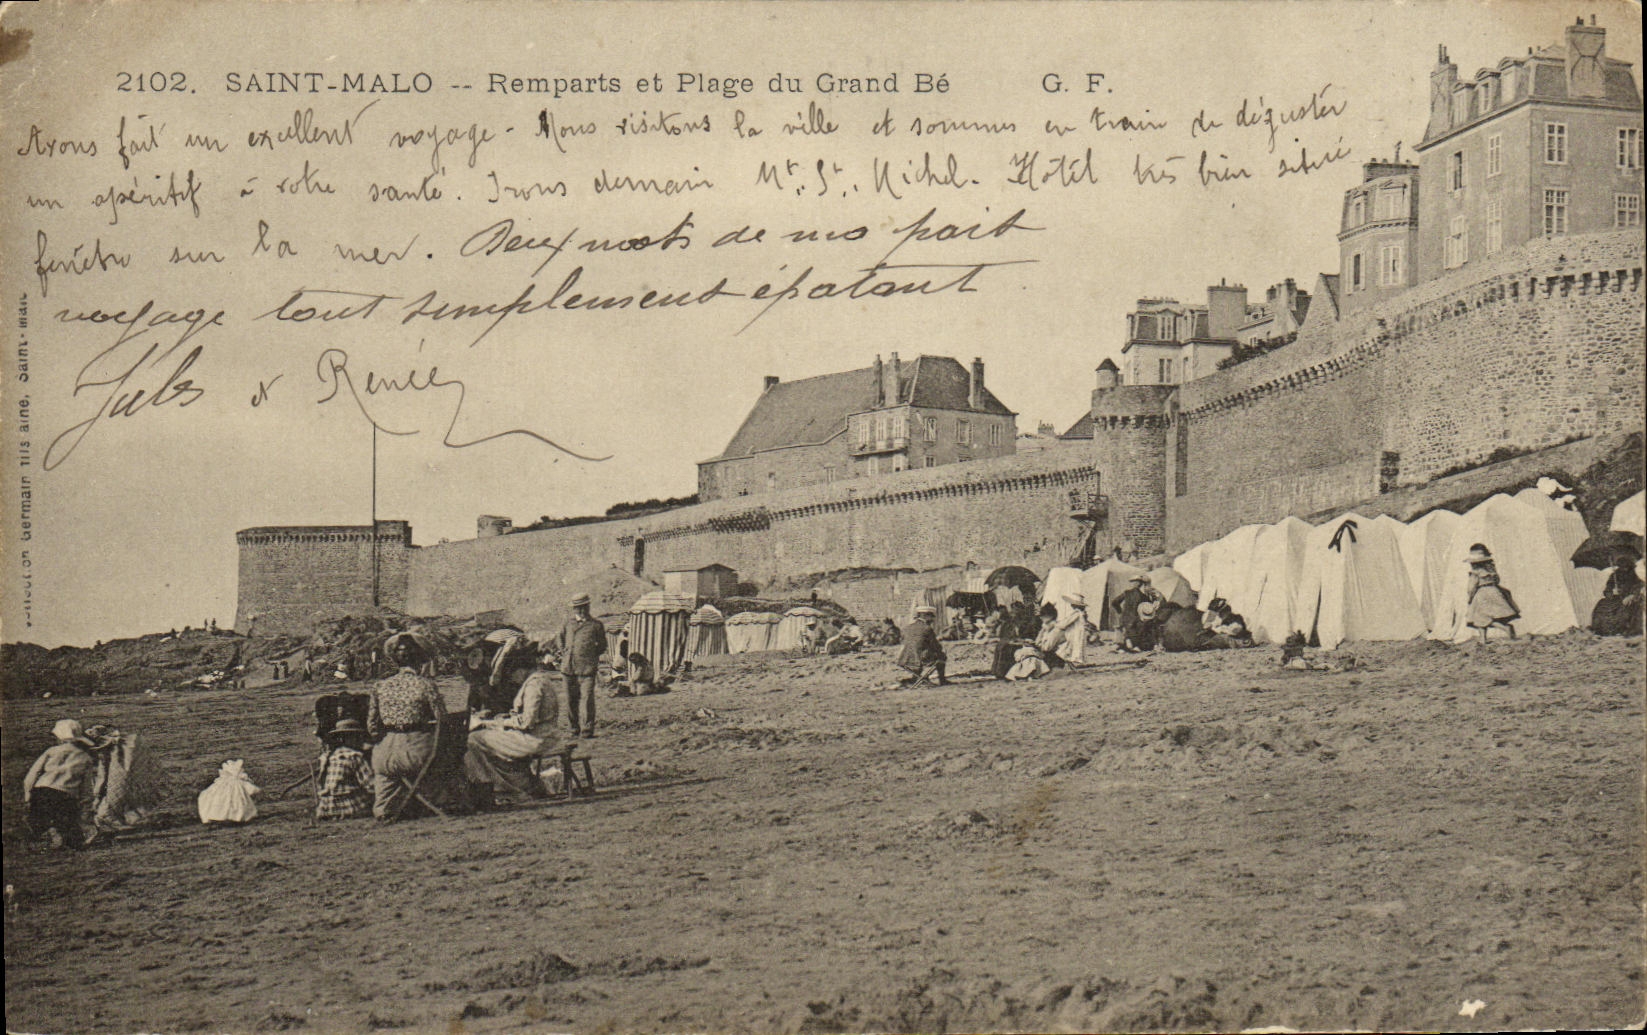 2102. SAINT-MALO -- Remparts et Plage du Grand Bé G. F.
Avons fait un excellent voyage - Nous visitons la ville et sommes en train de déguster
un apéritif à votre santé. Irons demain Mt. St. Michel. Hôtel très bien situé
fenêtre sur la mer. Deux mots de ma part
voyage tout simplement épatant
Jules et Renée
Collection Germain fils aîné, Saint-Malo